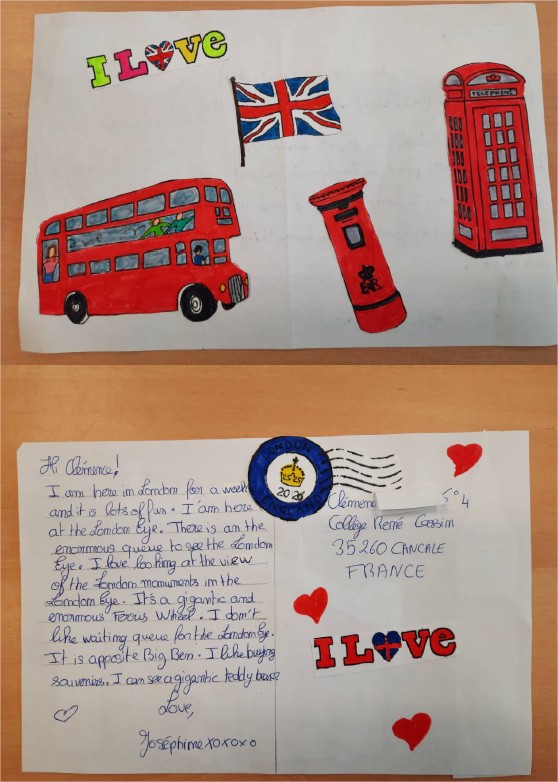 I LOVE
TELEPHONE
EIIR
Hi Clémence!
I am here in London for a week
and it is lots of fun. I'am here
at the London Eye. There is an the
enormous queue to see the London
Eye. I love looking at the view
of the London monuments in the
London Eye. It's a gigantic and
enormous Ferrus Wheel. I don't
like waiting queue for the London Eye.
It is apposite Big Ben. I like buying
souvenirs. I can see a gigantic teddy bear.
Love,
Joséphine xoxoxo
LONDON
ENGLAND
Clémence 5°4
Collège René Cassin
35260 CANCALE
FRANCE
I LOVE